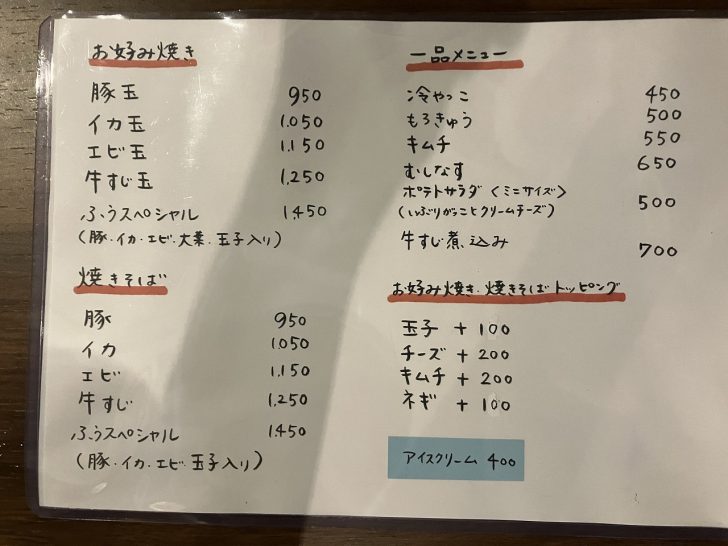 お好み焼き
豚玉 950
イカ玉 1,050
エビ玉 1,150
牛すじ玉 1,250
ふうスペシャル 1,450
(豚・イカ・エビ・大葉・玉子入り)
焼きそば
豚 950
イカ 1,050
エビ 1,150
牛すじ 1,250
ふうスペシャル 1,450
(豚・イカ・エビ・玉子入り)
一品メニュー
冷やっこ 450
もろきゅう 500
キムチ 550
むしなす 650
ポテトサラダ〈ミニサイズ〉
(いぶりがっことクリームチーズ) 500
牛すじ煮込み 700
お好み焼き・焼きそばトッピング
玉子 + 100
チーズ + 200
キムチ + 200
ネギ + 100
アイスクリーム 400